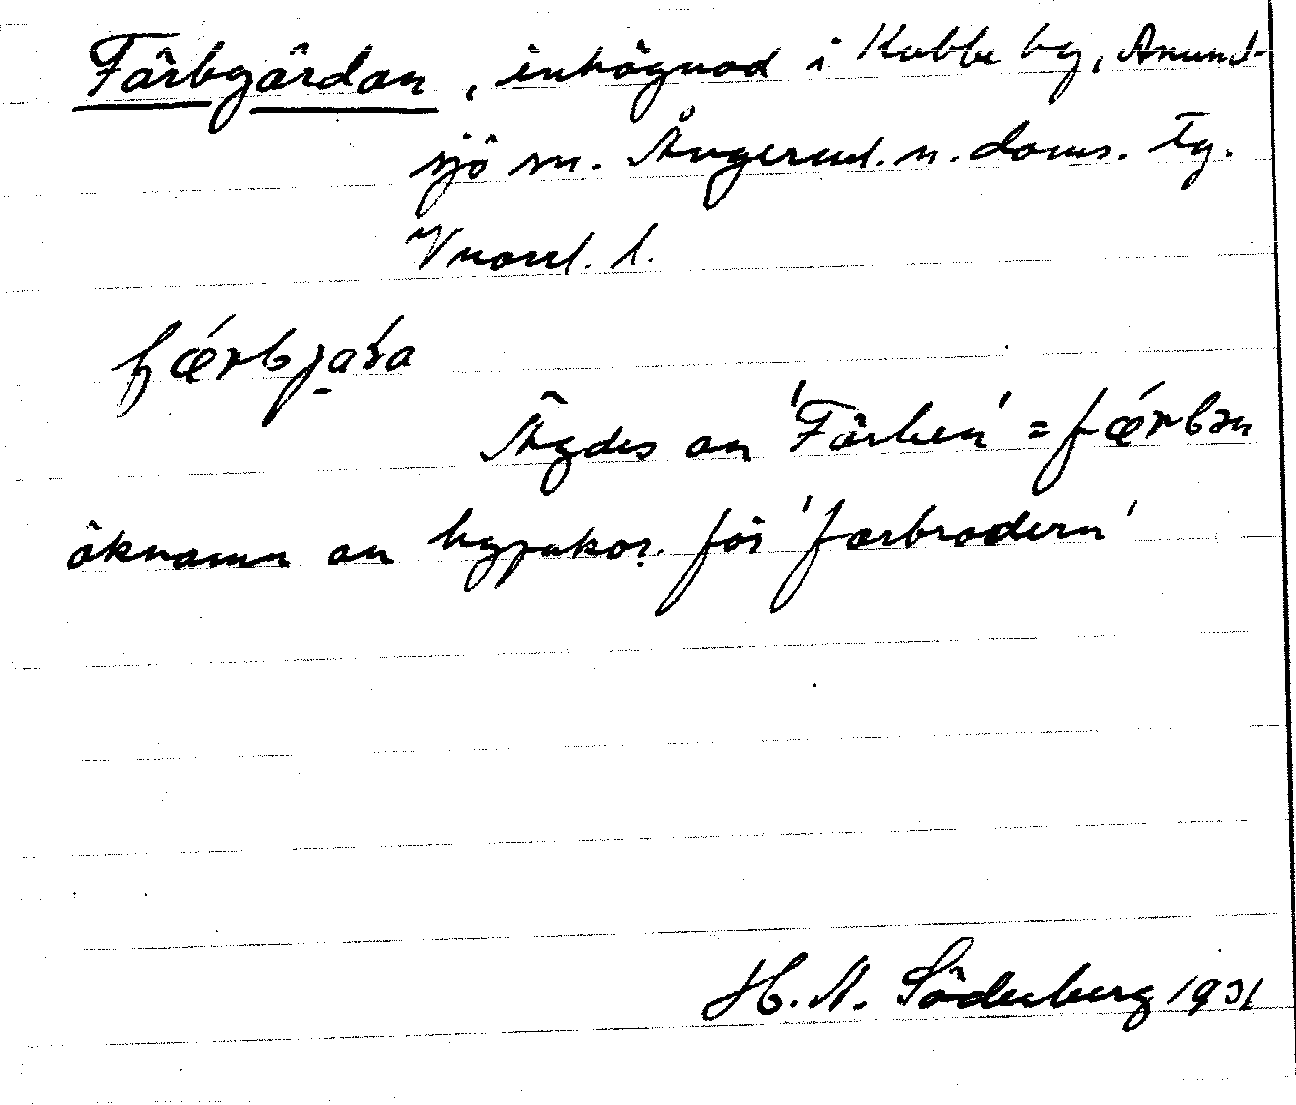 Färbgärdan, inhägnad i Kubbe by, Anund-
sjö sn. Ångerml. n. doms. tg.
Vnorrl. l.
fǽrbjaḍa
Ägdes av 'Färben' = fǽrbən
öknamn av hypokor. för 'farbrodern'
H. A. Söderberg 1931